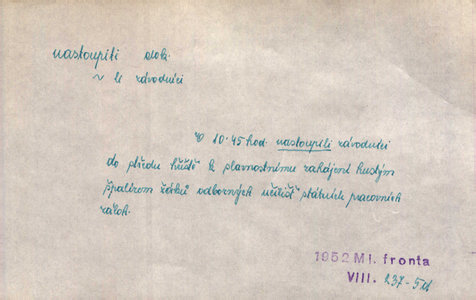 nastoupiti dok.
v k závodníci
V 10·45 hod. nastoupili závodníci
do středu hřiště k slavnostnímu zahájení hustým
špalírem žáků odborných učilišť státních pracovních
záloh.
1952 Ml. fronta
VIII. 237-5d